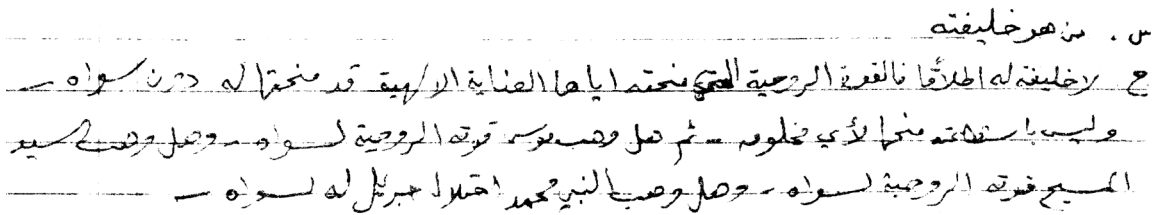 س . من هو خليفته
ج لا خليفة له اطلاقا فالقوة الروحية التي منحته اياها العناية الالهية قد منحتها له دون سواه -
وليس باستطاعته منحها لأي مخلوق - ثم هل وهب موسى قوته الروحية لسواه - وهل وهب السيد
المسيح قوته الروحية لسواه - وهل وهب النبي محمد احتلال جبريل له لسواه -